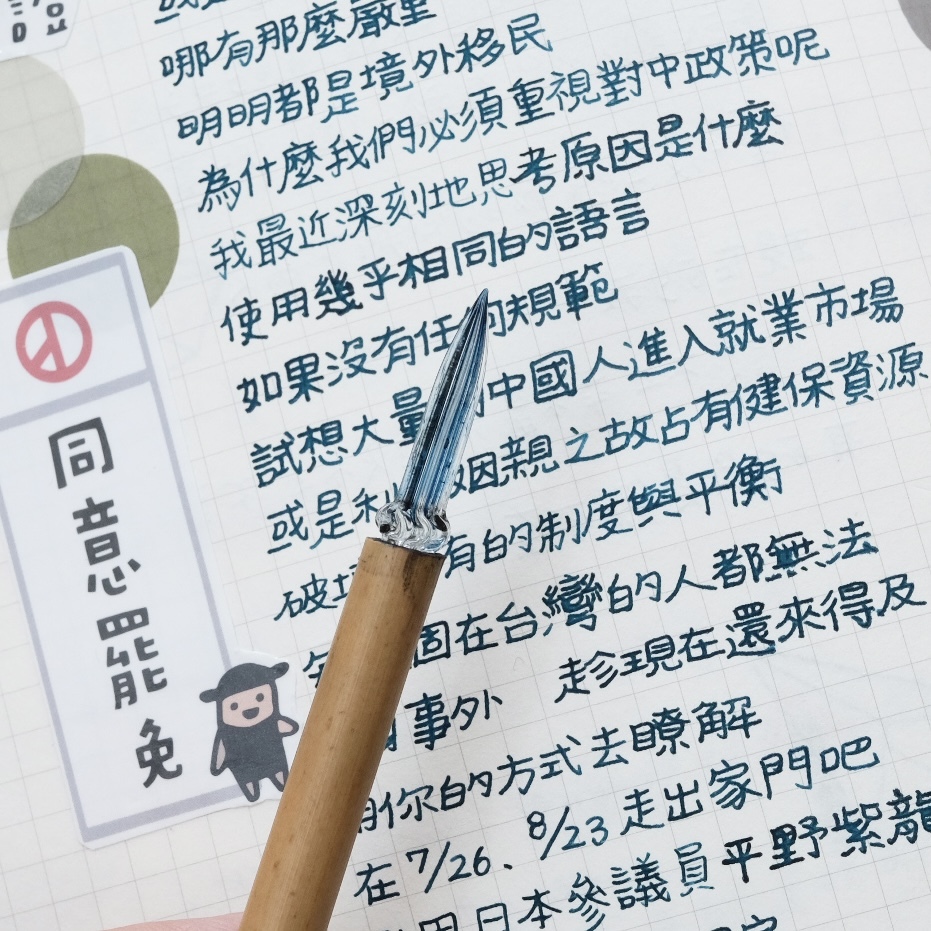 或是
哪有那麼嚴重
明明都是境外移民
為什麼我們必須重視對中政策呢
我最近深刻地思考原因是什麼
使用幾乎相同的語言
如果沒有任何規範
試想大量 中國人進入就業市場
或是 姻親之故占有健保資源
破壞 有的制度與平衡
固在台灣的人都無法
事外 趁現在還來得及
用你的方式去瞭解
在7/26、8/23走出家門吧
用日本參議員平野紫龍
同意罷免